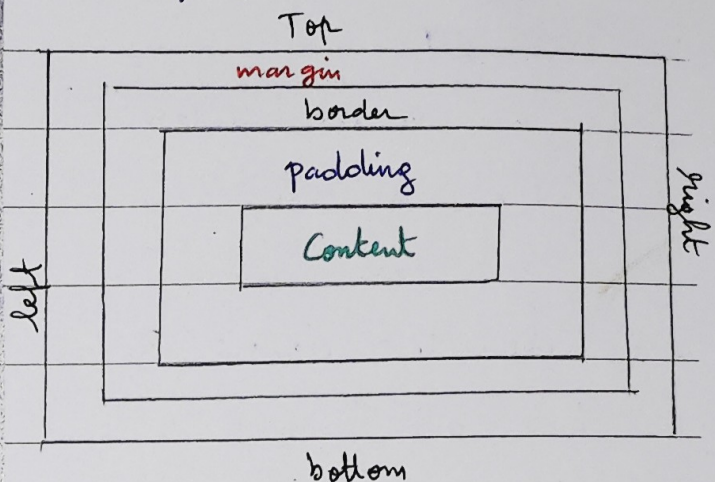 Top
margin
border
padding
Content
left
right
bottom